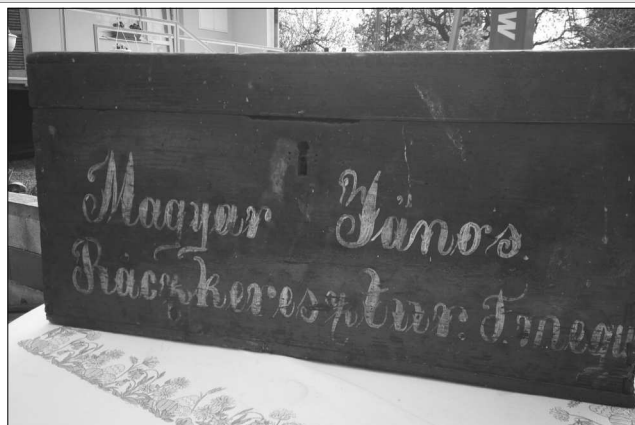 Magyar János.
Ráczkeresztur. F.megy
W